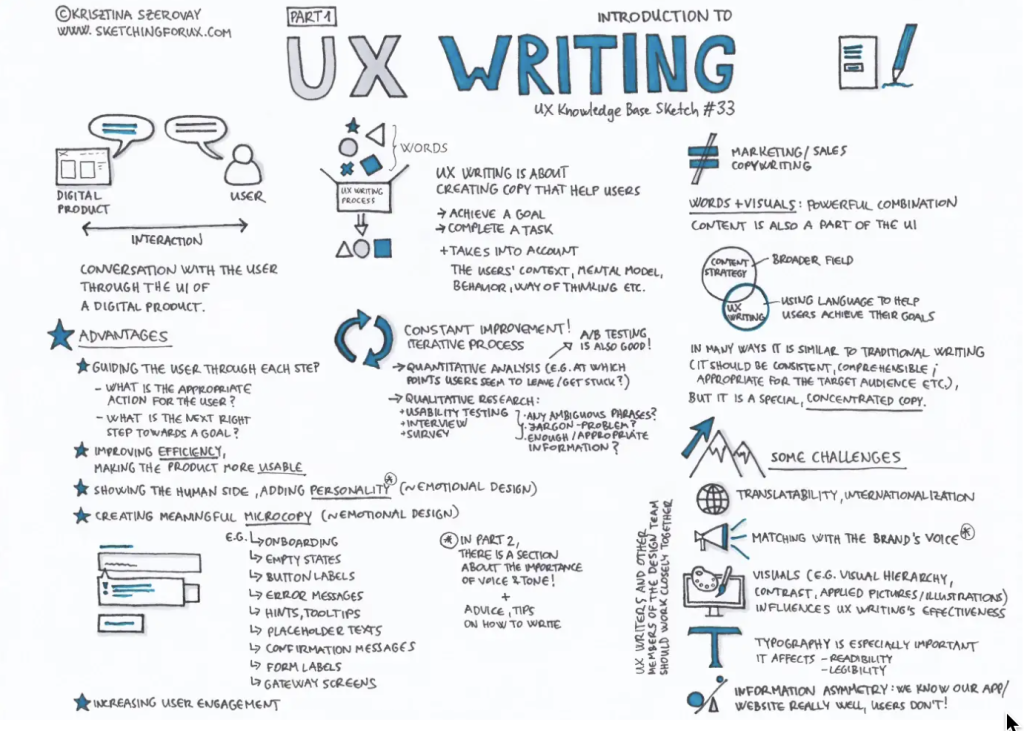 ©KRISZTINA SZEROVAY
WWW.SKETCHINGFORUX.COM
PART 1
INTRODUCTION TO
UX WRITING
UX Knowledge Base Sketch #33
DIGITAL
PRODUCT
USER
INTERACTION
CONVERSATION WITH THE USER
THROUGH THE UI OF
A DIGITAL PRODUCT.
WORDS
UX WRITING
PROCESS
UX WRITING IS ABOUT
CREATING COPY THAT HELP USERS
→ ACHIEVE A GOAL
→ COMPLETE A TASK
+ TAKES INTO ACCOUNT
THE USERS' CONTEXT, MENTAL MODEL,
BEHAVIOR, WAY OF THINKING ETC.
≠ MARKETING/SALES
COPYWRITING
WORDS + VISUALS: POWERFUL COMBINATION
CONTENT IS ALSO A PART OF THE UI
CONTENT
STRATEGY
BROADER FIELD
UX
WRITING
USING LANGUAGE TO HELP
USERS ACHIEVE THEIR GOALS
IN MANY WAYS IT IS SIMILAR TO TRADITIONAL WRITING
(IT SHOULD BE CONSISTENT, COMPREHENSIBLE,
APPROPRIATE FOR THE TARGET AUDIENCE ETC.),
BUT IT IS A SPECIAL, CONCENTRATED COPY.
ADVANTAGES
GUIDING THE USER THROUGH EACH STEP
- WHAT IS THE APPROPRIATE
ACTION FOR THE USER?
- WHAT IS THE NEXT RIGHT
STEP TOWARDS A GOAL?
IMPROVING EFFICIENCY,
MAKING THE PRODUCT MORE USABLE
SHOWING THE HUMAN SIDE, ADDING PERSONALITY* (~EMOTIONAL DESIGN)
CREATING MEANINGFUL MICROCOPY (~EMOTIONAL DESIGN)
E.G. ↳ ONBOARDING
↳ EMPTY STATES
↳ BUTTON LABELS
↳ ERROR MESSAGES
↳ HINTS, TOOLTIPS
↳ PLACEHOLDER TEXTS
↳ CONFIRMATION MESSAGES
↳ FORM LABELS
↳ GATEWAY SCREENS
INCREASING USER ENGAGEMENT
CONSTANT IMPROVEMENT!
ITERATIVE PROCESS
A/B TESTING
IS ALSO GOOD!
→ QUANTITATIVE ANALYSIS (E.G. AT WHICH
POINTS USERS SEEM TO LEAVE/GET STUCK?)
→ QUALITATIVE RESEARCH:
+ USABILITY TESTING
+ INTERVIEW
+ SURVEY
· ANY AMBIGUOUS PHRASES?
· JARGON-PROBLEM?
· ENOUGH/APPROPRIATE
INFORMATION?
* IN PART 2,
THERE IS A SECTION
ABOUT THE IMPORTANCE
OF VOICE & TONE!
+
ADVICE, TIPS
ON HOW TO WRITE
UX WRITERS AND OTHER
MEMBERS OF THE DESIGN TEAM
SHOULD WORK CLOSELY TOGETHER
SOME CHALLENGES
TRANSLATABILITY, INTERNATIONALIZATION
MATCHING WITH THE BRAND'S VOICE*
VISUALS (E.G. VISUAL HIERARCHY,
CONTRAST, APPLIED PICTURES/ILLUSTRATIONS)
INFLUENCES UX WRITING'S EFFECTIVENESS
TYPOGRAPHY IS ESPECIALLY IMPORTANT
IT AFFECTS - READIBILITY
- LEGIBILITY
INFORMATION ASYMMETRY: WE KNOW OUR APP/
WEBSITE REALLY WELL, USERS DON'T!